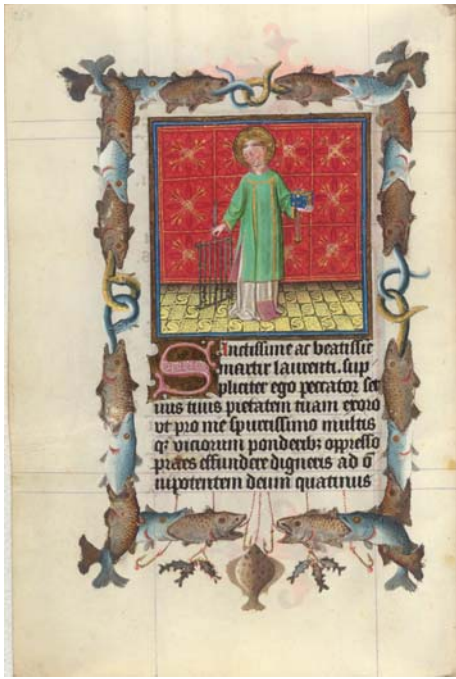 Sanctissime ac beatissie
martir laurenti. sup
pliciter ego peccator ser
uus tuus pietatem tuam exoro
vt pro me spurcissimo multis
qꝫ viciorum ponderibꝫ oppresso
preces effundere digneris ad o
nipotentem deum quatinus